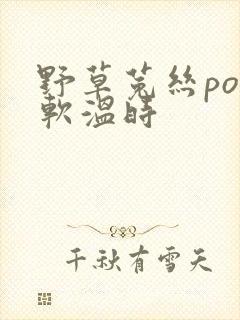 野草菟絲po
軟溫時
千秋有雪天